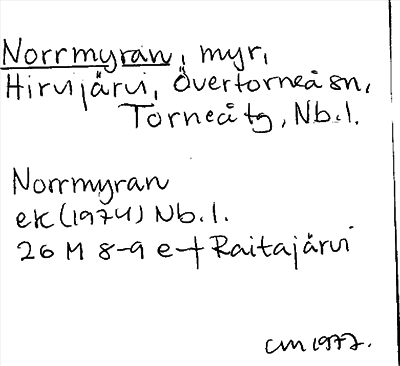 Norrmyran, myr,
Hirvijärvi, Övertorneå sn,
Torneå tg, Nb.l.
Norrmyran
ek (1974) Nb.l.
26 M 8-9 e-f Raitajärvi
CM 1977.